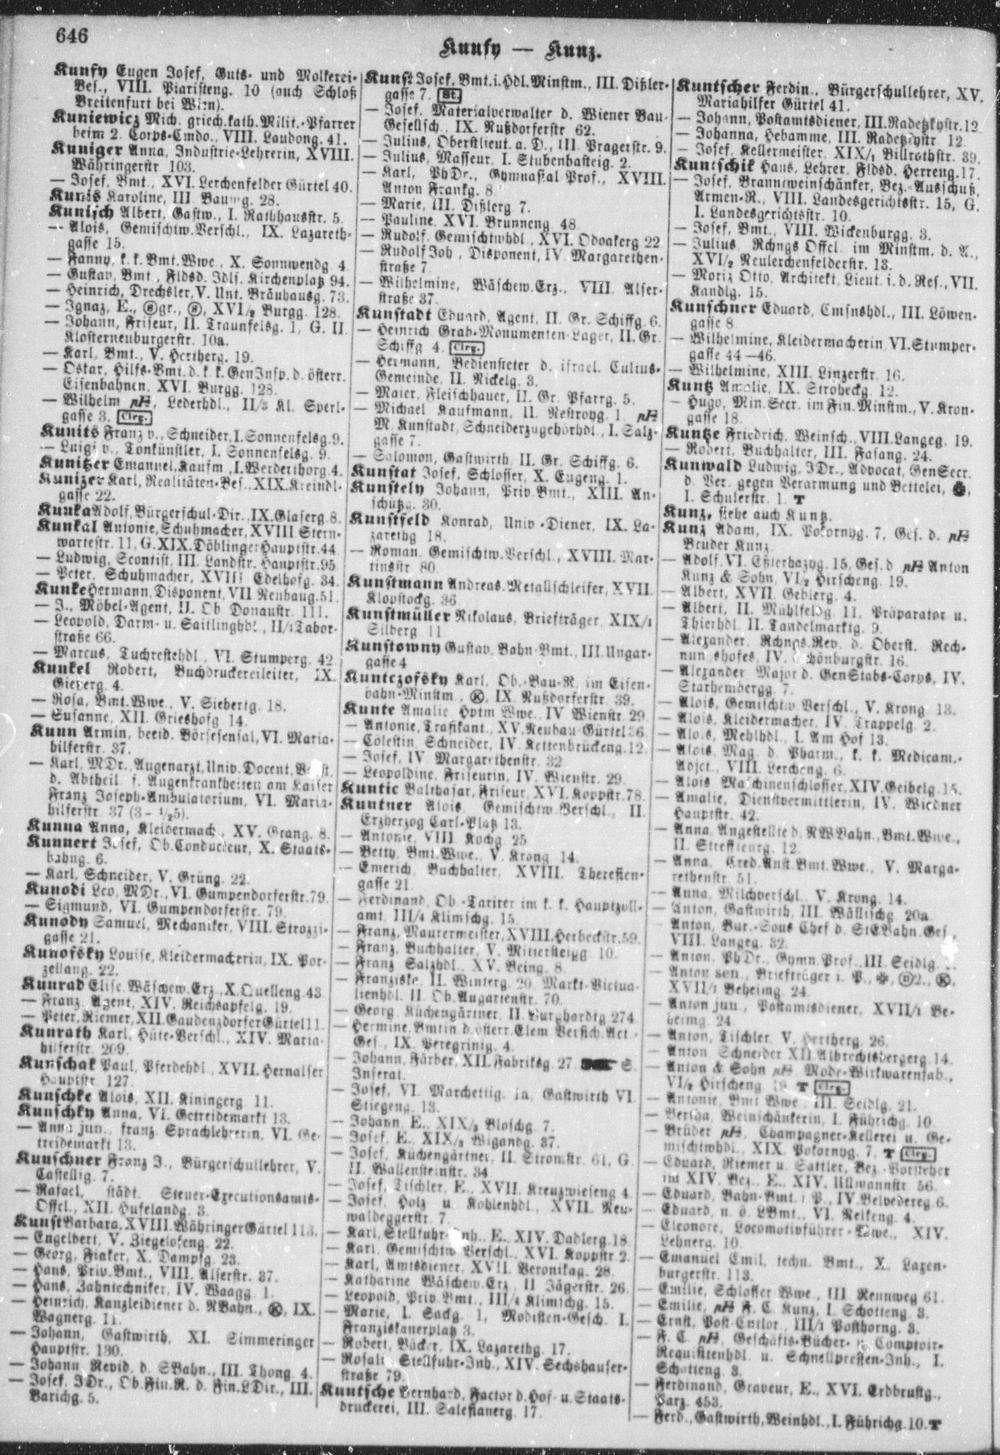 646
Kunfy — Kunz.
Kunfy Eugen Josef, Guts- und Molkerei-
Bes., VIII. Piaristeng. 10 (auch Schloß
Breitenfurt bei Wien).
Kuniewicz Mich. griech.kath. Milit.-Pfarrer
beim 2. Corps-Cmdo., VIII. Laudong. 41.
Kuniger Anna, Industrie-Lehrerin, XVIII.
Währingerstr 103.
— Josef, Bmt., XVI. Lerchenfelder Gürtel 40.
Karoline, III. 28.
Kunisch Albert, Gastw., I. Rathhausstr. 5.
— Alois, Gemischtw.Verschl., IX. Lazareth-
gasse 15.
— Fanny, k. k. Bmt.Wwe., X. Sonnwendg 4
— Gustav, Bmt., Fldsd. Jdlf. Kirchenplatz 94.
— Heinrich, Drechsler, V. Unt. Bräuhausg. 73.
— Ignaz, E., XVI/2 Burgg. 128.
— Johann, Friseur, II. Traunfelsg. 1, G. II.
Klosterneuburgerstr. 10a.
— Karl, Bmt., V. Hertherg. 19.
— Oskar, Hilfs-Bmt. d. k. k. GenInsp. d. österr.
Eisenbahnen, XVI. Burgg. 128.
— Wilhelm pH, Lederhdl., II/3 Kl. Sperl-
gasse 3. Clrg.
Kunits Franz v., Schneider, I. Sonnenfelsg. 9.
— Luigi v., Tonkünstler, I. Sonnenfelsg. 9.
Kunitzer Emanuel, Kaufm., I. Werderthorg. 4.
Kunizer Karl, Realitäten-Bes., XIX. Kreindl-
gasse 22.
Kunka Adolf, Bürgerschul-Dir., IX. Glaserg. 8.
Kunkal Antonie, Schuhmacher, XVIII Stern-
wartestr. 11, G. XIX. Döblinger Hauptstr. 44
— Ludwig, Scontist, III. Landstr. Hauptstr. 95
— Peter, Schuhmacher, XVIII Edelhofg. 34.
Kunke Hermann, Disponent, VII Neubaug. 51.
— J., Möbel-Agent, II. Ob Donaustr. 111.
— Leopold, Darm- u. Saitlinghdl., II/1 Tabor-
straße 66.
— Marcus, Tuchrestehdl., VI. Stumperg. 42
Kunkel Robert, Buchdruckereileiter, IX.
4.
— Rosa, Bmt.Wwe., V. Siebertg. 18.
— Susanne, XII. Grieshofg 14.
Kunn Armin, beeid. Börsesensal, VI. Maria-
hilferstr. 37.
— Karl, MDr., Augenarzt, Univ. Docent,
d. Abtheil. f. Augenkrankheiten am Kaiser
Franz Joseph-Ambulatorium, VI. Maria-
hilferstr. 37 (3 – ½5).
Kunna Anna, Kleidermach., XV. Grang. 8.
Kunnert Josef, Ob.Conducteur, X. Staats-
bahng. 6.
— Karl, Schneider, V. Grüng. 22.
Kunodi Leo, MDr., VI. Gumpendorferstr. 79.
— Sigmund, VI. Gumpendorferstr. 79.
Kunody Samuel, Mechaniker, VIII. Strozzi-
gasse 21.
Kunofsky Louise, Kleidermacherin, IX. Por-
zellang. 22.
Kunrad Elise, Wäschew.Erz., X. Quelleng. 43
— Franz, Agent, XIV. Reichsapfelg. 19.
— Peter, Riemer, XII. Gaudenzdorfer Gürtel 11.
Kunrath Karl, Hüte-Verschl., XIV. Maria-
hilferstr. 209.
Kunschak Paul, Pferdehdl., XVII. Hernalser
Hauptstr. 127.
Kunschke Alois, XII. Kiningerg. 11.
Kunschky Anna, VI. Getreidemarkt 13.
— Anna jun., franz. Sprachlehrerin, VI. Ge-
treidemarkt 13.
Kunschner Franz J., Bürgerschullehrer, V.
Castellig. 7.
— Rafael, städt. Steuer-Executionsamts-
Offcl., XII. Hufelandg. 3.
Kunst Barbara, XVIII. Währinger Gürtel 113.
— Engelbert, V. Ziegelofeng. 22.
— Georg, Fiaker, X. Dampfg. 23.
— Hans, Priv. Bmt., VIII. Alserstr. 37.
— Hans, Zahntechniker, IV. Waagg. 1.
— Heinrich, Kanzleidiener d. NBahn., IX.
Wagnerg. 11.
— Johann, Gastwirth, XI. Simmeringer
Hauptstr. 130.
— Johann, Revid. d. SBahn., III. Thong. 4.
— Josef, JDr., Ob.Fin.R. d. Fin.LDir., III.
Barichg. 5.
Kunst Josef, Bmt. i. Hdl. Minstm., III. Dißler-
gasse 7. St.
— Josef, Materialverwalter d. Wiener Bau-
Gesellsch., IX. Nußdorferstr 62.
— Julius, Oberstlieut. a. D., III. Pragerstr. 9.
— Julius, Masseur, I. Stubenbasteig. 2.
— Karl, PhDr., Gymnasial Prof., XVIII.
Anton Frankg. 8.
— Marie, III. Dißlerg 7.
— Pauline, XVI. Brunneng 48
— Rudolf, Gemischtwhdl., XVI. Odoakerg 22
— Rudolf Joh., Disponent, IV. Margarethen-
straße 7.
— Wilhelmine, Wäschew.Erz., VIII. Alser-
straße 37.
Kunstadt Eduard, Agent, II. Gr. Schiffg. 6.
— Heinrich, Grab-Monumenten-Lager, II. Gr.
Schiffg 4. Clrg.
— Hermann, Bediensteter d. israel. Cultus-
Gemeinde, II. Nickelg. 3.
— Maier, Fleischhauer, II. Gr. Pfarrg. 5.
— Michael, Kaufmann, II. Nestroyg. 1. pH
M. Kunstadt, Schneiderzugehörhdl., I. Salz-
gasse 7.
— Salomon, Gastwirth, II. Gr. Schiffg. 6.
Kunstat Josef, Schlosser, X. Eugeng. 1.
Kunstely Johann, Priv. Bmt., XIII. An-
schützg. 30.
Kunstfeld Konrad, Univ.-Diener, IX. La-
zarethg 18.
— Roman, Gemischtw.Verschl., XVIII. Mar-
tinsstr 80.
Kunstmann Andreas, Metallschleifer, XVII.
Klopstockg. 36.
Kunstmüller Nikolaus, Briefträger, XIX/1
Silberg 11
Kunstowny Gustav, Bahn-Bmt., III. Ungar-
gasse 4
Kuntezofsky Karl, Ob.-Bau-R. im Eisen-
bahn-Minstm., IX. Nußdorferstr. 39.
Kunte Amalie, Hptm.Wwe., IV Wienstr. 29.
— Antonie, Trafikant., XV. Neubau-Gürtel 36.
— Cölestin, Schneider, IV. Kettenbrückeng. 12.
— Josef, IV Margarethenstr. 32
— Leopoldine, Friseurin, IV. Wienstr. 29.
Kuntic Balthasar, Friseur, XVI. Koppstr. 78.
Kuntner Alois, Gemischtw.Verschl., II.
Erzherzog Carl-Platz 13.
— Antonie, VIII Kochg 25
— Betty, Bmt.Wwe., V. Krong 14.
— Emerich, Buchhalter, XVIII. Theresien-
gasse 21.
— Ferdinand, Ob.-Tarirer im k. k. Hauptzoll-
amt, III/1 Klimschg. 15.
— Franz, Maurermeister, XVIII. Herbeckstr. 59.
— Franz, Buchhalter, V. Mittersteigg 10.
— Franz, Salzhdl., XV. Being. 8.
— Franziske, II. Winterg. 20, Markt-Victua-
lienhdl. II. Ob. Augartenstr. 70.
— Georg, Küchengärtner, II. Burghardtg 27
— Hermine, Bmtin d. österr. Elem. Versich. Act.-
Ges., IX. Peregring. 4.
— Johann, Färber, XII. Fabriksg. 27 S.
Inserat.
— Josef, VI. Marchettig. 1a, Gastwirth VI.
Stiegeng. 13.
— Johann, E., XIX/2 Bloschg. 7.
— Josef, E., XIX/2 Wigandg. 37.
— Josef, Küchengärtner, II. Stromstr. 61, G.
II. Wallensteinstr. 34
— Josef, Tischler, E., XVII. Kreuzwieseng 4.
— Josef, Holz u Kohlenhdl., XVII. Neu-
waldeggerstr. 7.
— Karl, Stellfuhr-Inh., E., XIV. Dadlerg. 18.
— Karl, Gemischtw.Verschl., XVI. Koppstr. 2.
— Karl, Amtsdiener, XVII. Veronikag. 28.
— Katharine, Wäschew. Erz., II. Jägerstr. 26.
— Leopold, Priv. Bmt., III/1 Klimschg. 15.
— Marie, I. Sackg. 1, Modisten-Gesch. I.
Franziskanerplatz 3.
— Robert, Bäcker, IX. Lazarethg. 17.
— Rosalia, Stellfuhr-Inh., XIV. Sechshauser-
straße 79.
Kuntsche Bernhard, Factor d. Hof- u. Staats-
druckerei, III. Salesianerg. 17.
Kuntscher Ferdin., Bürgerschullehrer, XV.
Mariahilfer Gürtel 41.
— Johann, Postamtsdiener, III. Radetzkystr. 12.
— Johanna, Hebamme, III. Radetzkystr. 12.
— Josef, Kellermeister, XIX/1 Billrothstr. 39.
Kuntschik Hans, Lehrer, Fldsd. Herreng. 17.
— Josef, Branntweinschänker, Bez.-Ausschuß,
Armen-R., VIII. Landesgerichtsstr. 15, G.
I. Landesgerichtsstr. 10.
— Josef, Bmt., VIII. Wickenburgg. 3.
— Julius, Rchngs Offcl. im Minstm. d. A.,
XVI/2 Neulerchenfelderstr. 13.
— Moriz Otto, Architekt, Lieut. i. d. Res., VII.
Kandlg. 15.
Kunschner Eduard, Cmsnshdl., III. Löwen-
gasse 8
— Wilhelmine, Kleidermacherin, VI. Stumper-
gasse 44—46.
— Wilhelmine, XIII. Linzerstr. 16.
Kuntz Amalie, IX. Strobeckg. 12.
— Hugo, Min. Secr. im Fin. Minstm., V. Kron-
gasse 18.
Kuntze Friedrich, Weinsch., VIII. Langeg. 19.
— Robert, Buchhalter, III. Fasang. 24.
Kunwald Ludwig, JDr., Advocat, GenSecr.
d. Ver. gegen Verarmung und Bettelei,
I. Schulerstr. 1. T
Kunz, siehe auch Kuntz.
Kunz Adam, IX. Pokornyg. 7, Ges. d. pH
Brüder Kunz.
— Adolf, VI. Eßterhazyg. 15, Ges. d pH Anton
Kunz & Sohn, VI/2 Hirscheng. 19.
— Albert, XVII. Geblerg. 4.
— Albert, II. Mühlfeldg. 11. Präparator u.
Thierhdl. II. Tandelmarktg. 9.
— Alexander, Rchngs.Rev. d. Oberst. Rech-
nungshofes, IV. Schönburgstr. 16.
— Alexander, Major d. GenStabs-Corps, IV.
Starhembergg. 7.
— Alois, Gemischtw. Verschl., V. Krong 13.
— Alois, Kleidermacher, IV. Trappelg. 2.
— Alois, Mehlhdl., I. Am Hof 13.
— Alois, Mag. d. Pharm., k. k. Medicam.-
Adjct., VIII. Lercheng. 6.
— Alois, Maschinenschlosser, XIV. Geibelg. 15.
— Amalie, Dienstvermittlerin, IV. Wiedner
Hauptstr. 42.
— Anna, Angestellte d. NWBahn, Bmt.Wwe.,
II. Streffleurg. 12.
— Anna, Cred.Anst.Bmt.Wwe., V. Marga-
rethenstr. 51.
— Anna, Milchverschl., V. Krong. 14.
— Anton, Gastwirth, III. Wällischg. 20a
— Anton, Bur.-Sous Chef d. StEBahn. Ges.,
VIII. Langeg. 32.
— Anton, PhDr., Gymn. Prof., III. Seidlg.
— Anton sen., Briefträger i. P.,
XVII/1 Beheimg. 24
— Anton jun., Postamtsdiener, XVII/1 Be-
heimg. 24
— Anton, Tischler, V. Hertherg. 26.
— Anton, Schneider, XII. Albrechtsbergerg. 14.
— Anton & Sohn pH Mode-Wirkwarenfab.,
VI/2 Hirscheng 19. T Clrg.
— Antonie, Bmt Wwe., III. Seidlg. 21.
— Bertha, Weinschänkerin, I. Führichg. 10.
— Brüder pH, Champagner-Kellerei u. Ge-
mischtwhdl., XIX. Pokornyg. 7. T Clrg.
— Eduard, Riemer u. Sattler, Bez.-Vorsteher
im XIV. Bez., E., XIV. Ullmannstr 56.
— Eduard, Bahn-Bmt. i. P., IV. Belvedereg 6.
— Eduard, n. ö. LBmt., VI. Reikeng. 4.
— Eleonore, Locomotivführer-Wwe., XIV.
Lehnerg. 10.
— Emanuel Emil, techn. Bmt., X. Laxen-
burgerstr. 113.
— Emilie, Schlosser Wwe., III. Rennweg 61.
— Emilie, pH F. C. Kunz, I. Schotteng. 3.
— Ernst, Post-Cntlor., III/1 Posthorng. 3.
— F. C. pH, Geschäfts-Bücher- u. Comptoir-
Requisitenhdl. u. Schnellpressen-Inh., I.
Schotteng. 3.
— Ferdinand, Graveur, E., XVI. Erdbrustg.,
Parz. 453.
— Ferd., Gastwirth, Weinhdl., I. Führichg. 10. T